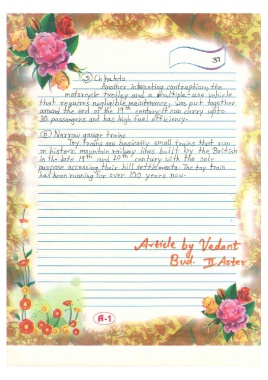 37
⑤ Chhakda
Another interesting contraption, the
motorcycle trolley and a multiple-use vehicle
that requires negligible maintenance, was put together
around the end of the 19th century. It can carry upto
30 passengers and has high fuel efficiency.
⑥ Narrow gauge trains
Toy trains are basically small trains that run
on historic mountain railway lines built by the British
in the late 19th and 20th century with the sole
purpose accessing their hill settlements. The toy train
has been running for over 100 years now.
Article by Vedant
Bud. II Aster
A-1